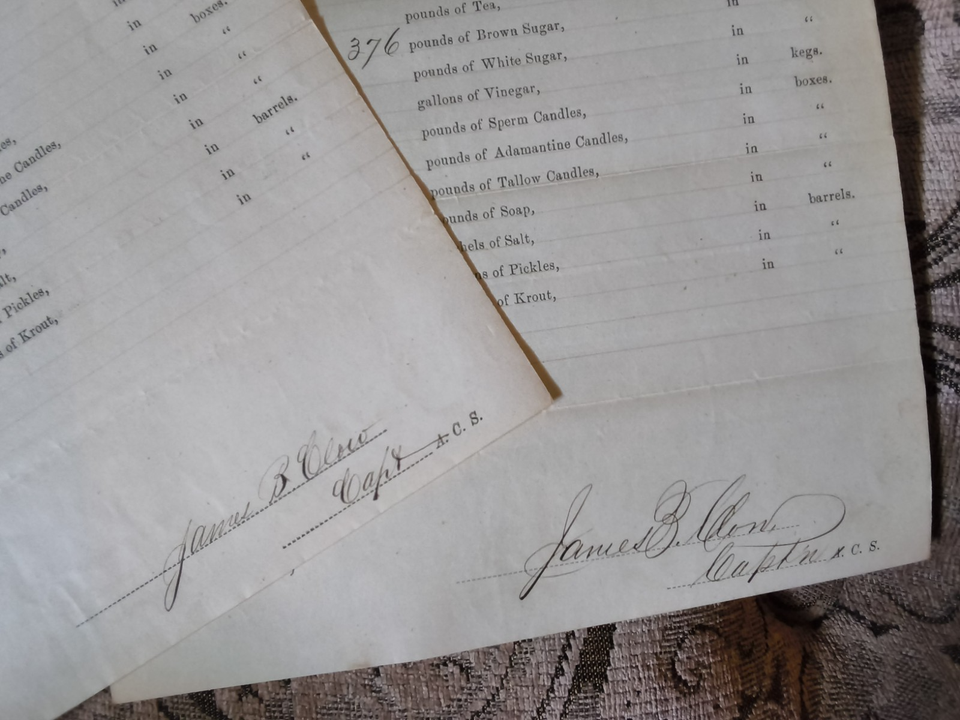 in
in boxes.
in “
in “
in “
in barrels.
in “
in “
in
es,
ne Candles,
Candles,
alt,
Pickles,
s of Krout,
James B Clow
Capt A. C. S.
pounds of Tea, in
376 pounds of Brown Sugar, in “
pounds of White Sugar, in kegs.
gallons of Vinegar, in boxes.
pounds of Sperm Candles, in “
pounds of Adamantine Candles, in “
pounds of Tallow Candles, in “
ounds of Soap, in barrels.
hels of Salt, in “
ns of Pickles, in “
of Krout,
James B. Clow
Capt'n A. C. S.